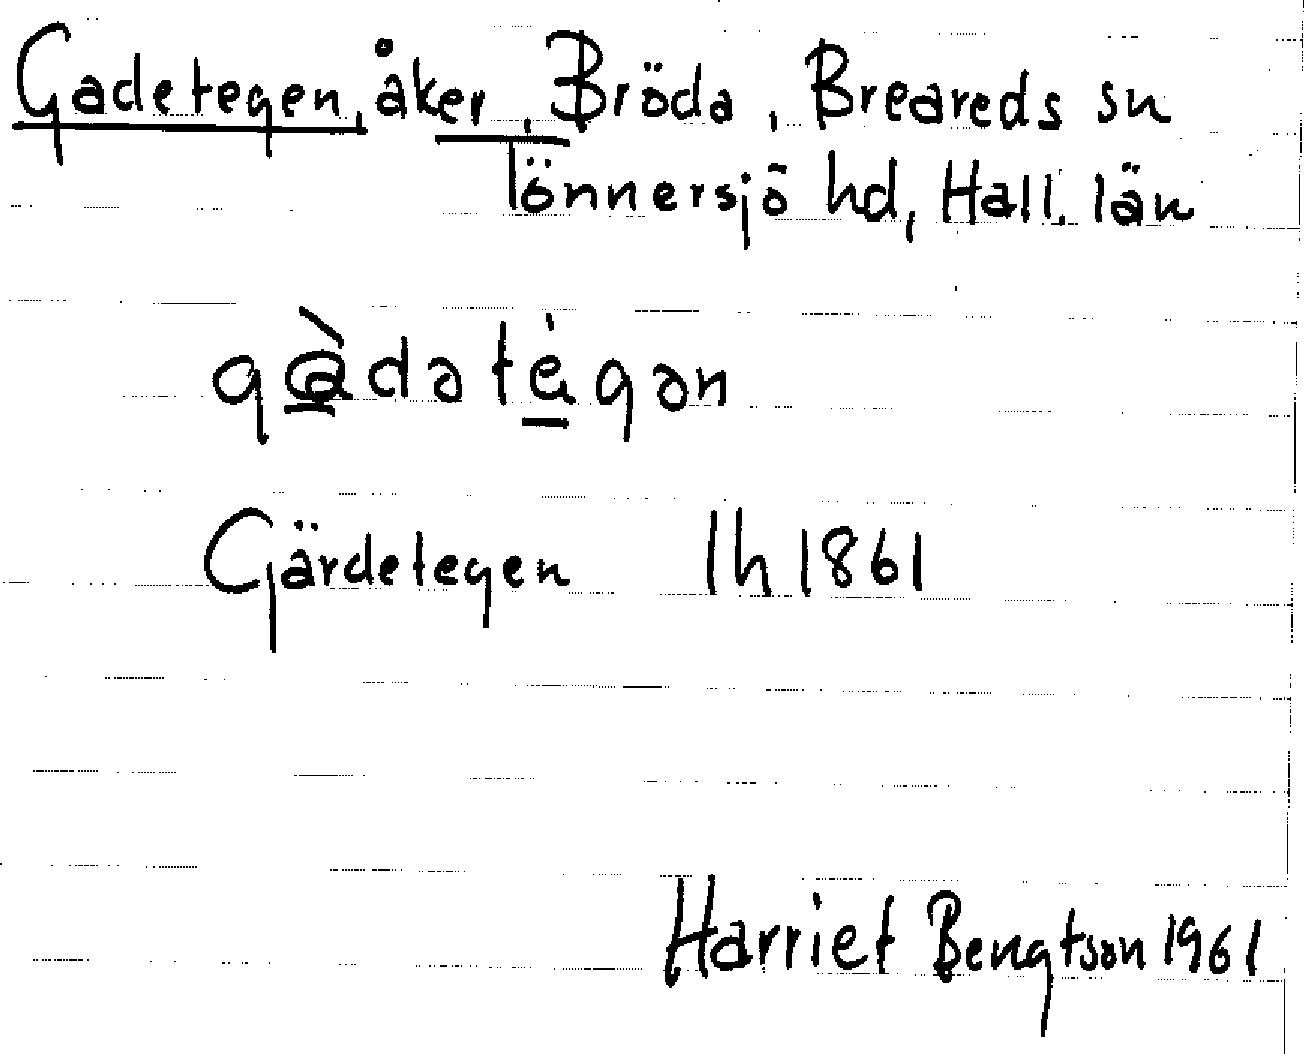 Gadetegen, åker, Bröda, Breareds sn
Tönnersjö hd, Hall. län
gàdətègən
Gärdetegen lh 1861
Harriet Bengtson 1961